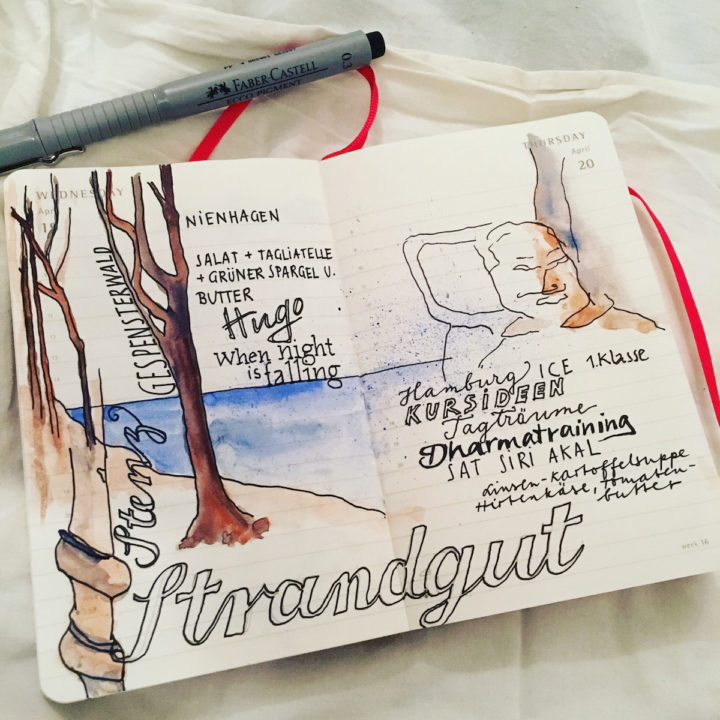 0.3
FABER-CASTELL
ECCO PIGMENT
WEDNESDAY
April
19
GESPENSTERWALD
NiENHAGEN
SALAT + TAGLIATELLE
+ GRÜNER SPARGEL U.
BUTTER
Hugo
When night
is falling
Stenz
Strandgut
THURSDAY
April
20
Hamburg ICE 1.Klasse
KURSiDEEN
Tagträume
Dharmatraining
SAT SIRI AKAL
Linsen-Kartoffelsuppe
Hirtenkäse, Tomaten-
butter
week 16